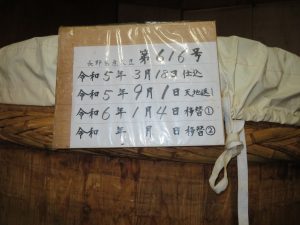 第616号
令和5年3月18日 仕込
令和5年9月1日 天地返し
令和6年1月4日 移替①
令和 年 月 日 移替②